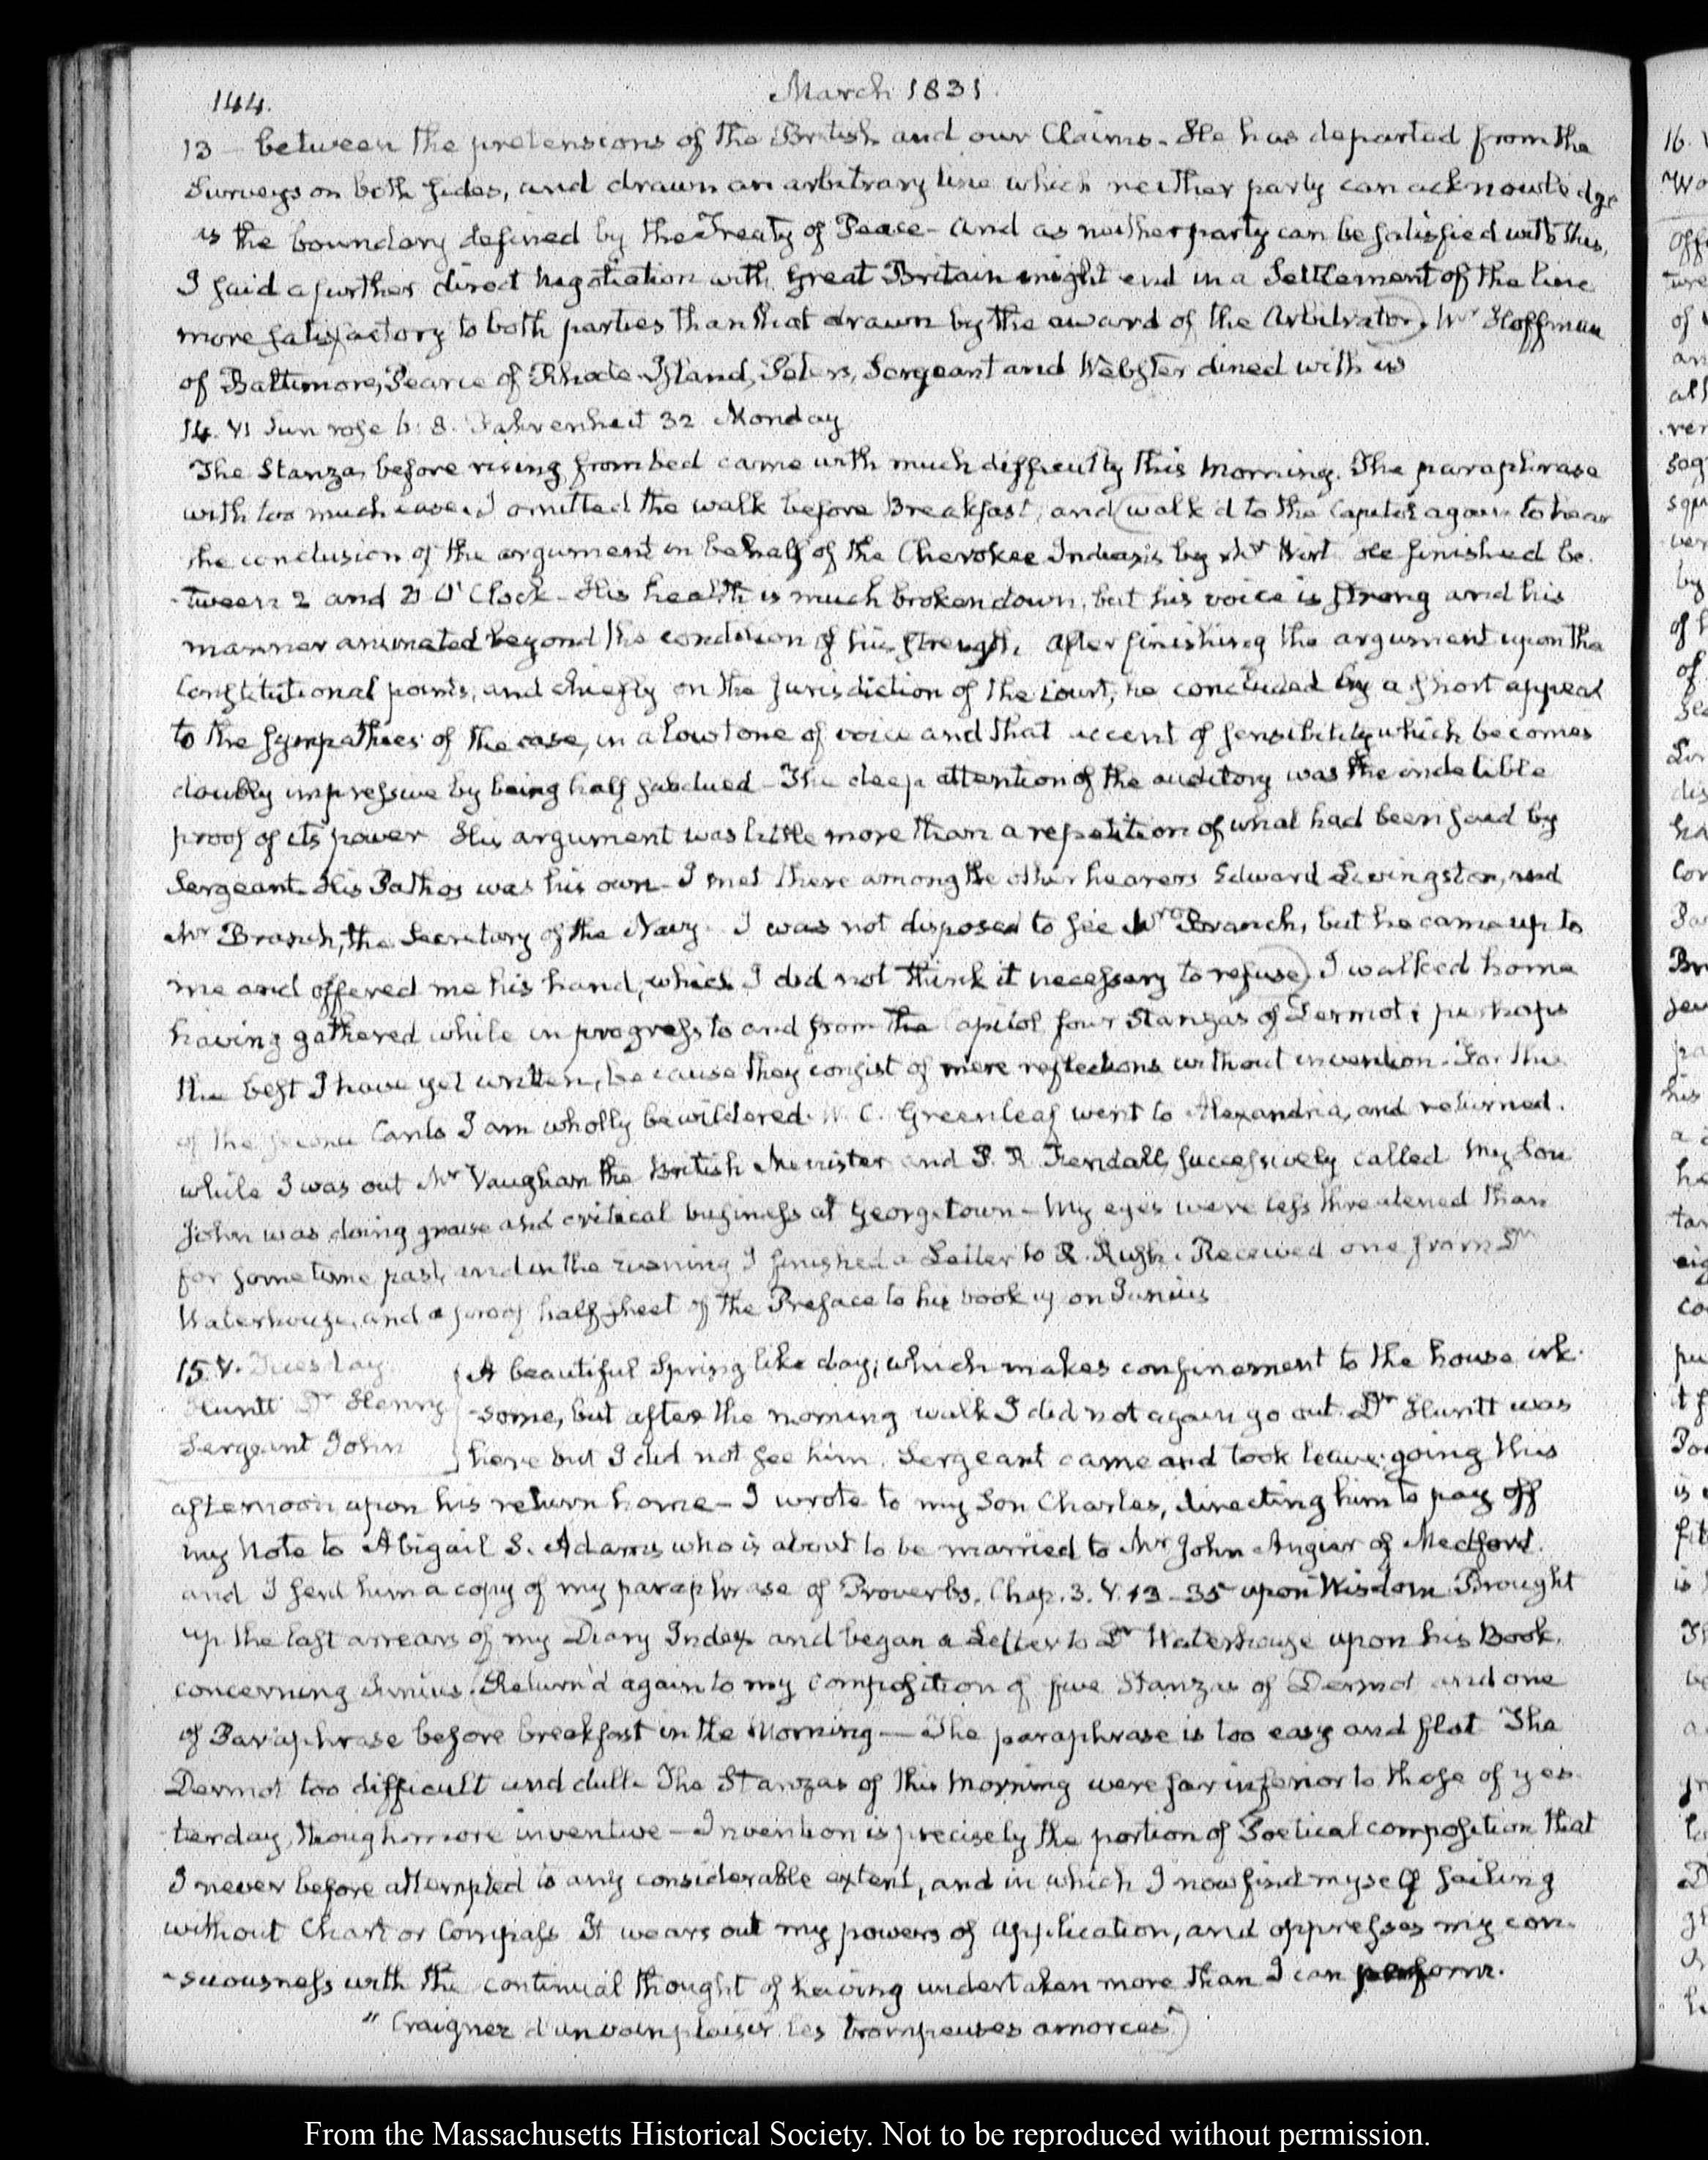 144.
March 1831.
13 – between the pretensions of the British and our Claims. He has departed from the
Surveys on both sides, and drawn an arbitrary line which neither party can acknowledge
as the boundary defined by the Treaty of Peace – and as neither party can be satisfied with this,
I said a further direct Negotiation with Great Britain might end in a Settlement of the line
more satisfactory to both parties than that drawn by the award of the Arbitrator). Mr Hoffman
of Baltimore, Pearce of Rhode-Island, Peters, Sergeant and Webster dined with us
14. VI Sun rose 6: 8. Fahrenheit 32. Monday
The Stanza, before rising from bed came with much difficulty this Morning. The paraphrase
with too much ease. I omitted the walk before Breakfast, and (walk'd to the Capitol again to hear
the conclusion of the argument in behalf of the Cherokee Indians by Mr Wirt He finished be-
-tween 2 and 3 O'Clock – His health is much broken down, but his voice is strong and his
manner animated beyond the condition of his strength. After finishing the argument upon the
Constitutional points, and chiefly on the jurisdiction of the Court, he concluded by a short appeal
to the sympathies of the case, in a low tone of voice and that accent of sensibility which becomes
doubly impressive by being half subdued – The deep attention of the auditory was the indelible
proof of its power His argument was little more than a repetition of what had been said by
Sergeant. His Pathos was his own – I met there among the other hearers Edward Livingston, and
Mr Branch, the Secretary of the Navy. I was not disposed to see Mr Branch, but he came up to
me and offered me his hand, which I did not think it necessary to refuse). I walked home
having gathered while in progress to and from the Capitol four Stanzas of Dermot; perhaps
the best I have yet written, because they consist of mere reflections without invention. For the
of the second Canto I am wholly bewildered. W. C. Greenleaf went to Alexandria, and returned.
while I was out Mr Vaughan the British Minister and P. R. Fendall, successively called My Son
John was doing grave and critical business at Georgetown – My eyes were less threatened than
for some time past, and in the evening I finished a Letter to R. Rush. Received one from Dr
Waterhouse, and a proof half sheet of the Preface to his book on Junius
15. V. Tuesday. A beautiful Spring like day, which makes confinement to the house irk-
Huntt Dr Henry -some, but after the morning walk I did not again go out. Dr Huntt was
Sergeant John here but I did not see him. Sergeant came and took leave; going this
afternoon upon his return home – I wrote to my Son Charles, directing him to pay off
my Note to Abigail S. Adams who is about to be married to Mr John Angier of Medford.
and I send him a copy of my paraphrase of Proverbs. Chap. 3. V. 13–35 upon Wisdom Brought
up the last arrears of my Diary Index and began a Letter to Dr Waterhouse upon his Book,
concerning Junius. (Return'd again to my Composition of five Stanzas of Dermot and one
of Paraphrase before breakfast in the Morning – The paraphrase is too easy and flat The
Dermot too difficult and dull. The Stanzas of this Morning were far inferior to those of yes-
-terday, though more inventive – Invention is precisely the portion of Poetical composition that
I never before attempted to any considerable extent, and in which I now find myself sailing
without Chart or Compass It wears out my powers of application, and oppresses my con-
-sciousness with the continual thought of having undertaken more than I can perform.
"Craignez d'un vain plaisir les trompeuses amorces")
From the Massachusetts Historical Society. Not to be reproduced without permission.